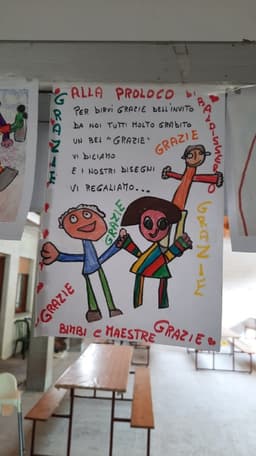 ALLA PROLOCO DI BALDISSERO
PER DIRVI GRAZIE DELL'INVITO
DA NOI TUTTI MOLTO GRADITO
UN BEL "GRAZIE"
VI DICIAMO
E I NOSTRI DISEGNI
VI REGALIAMO...
GRAZIE
GRAZIE
GRAZIE
GRAZIE
GRAZIE
BIMBI E MAESTRE GRAZIE